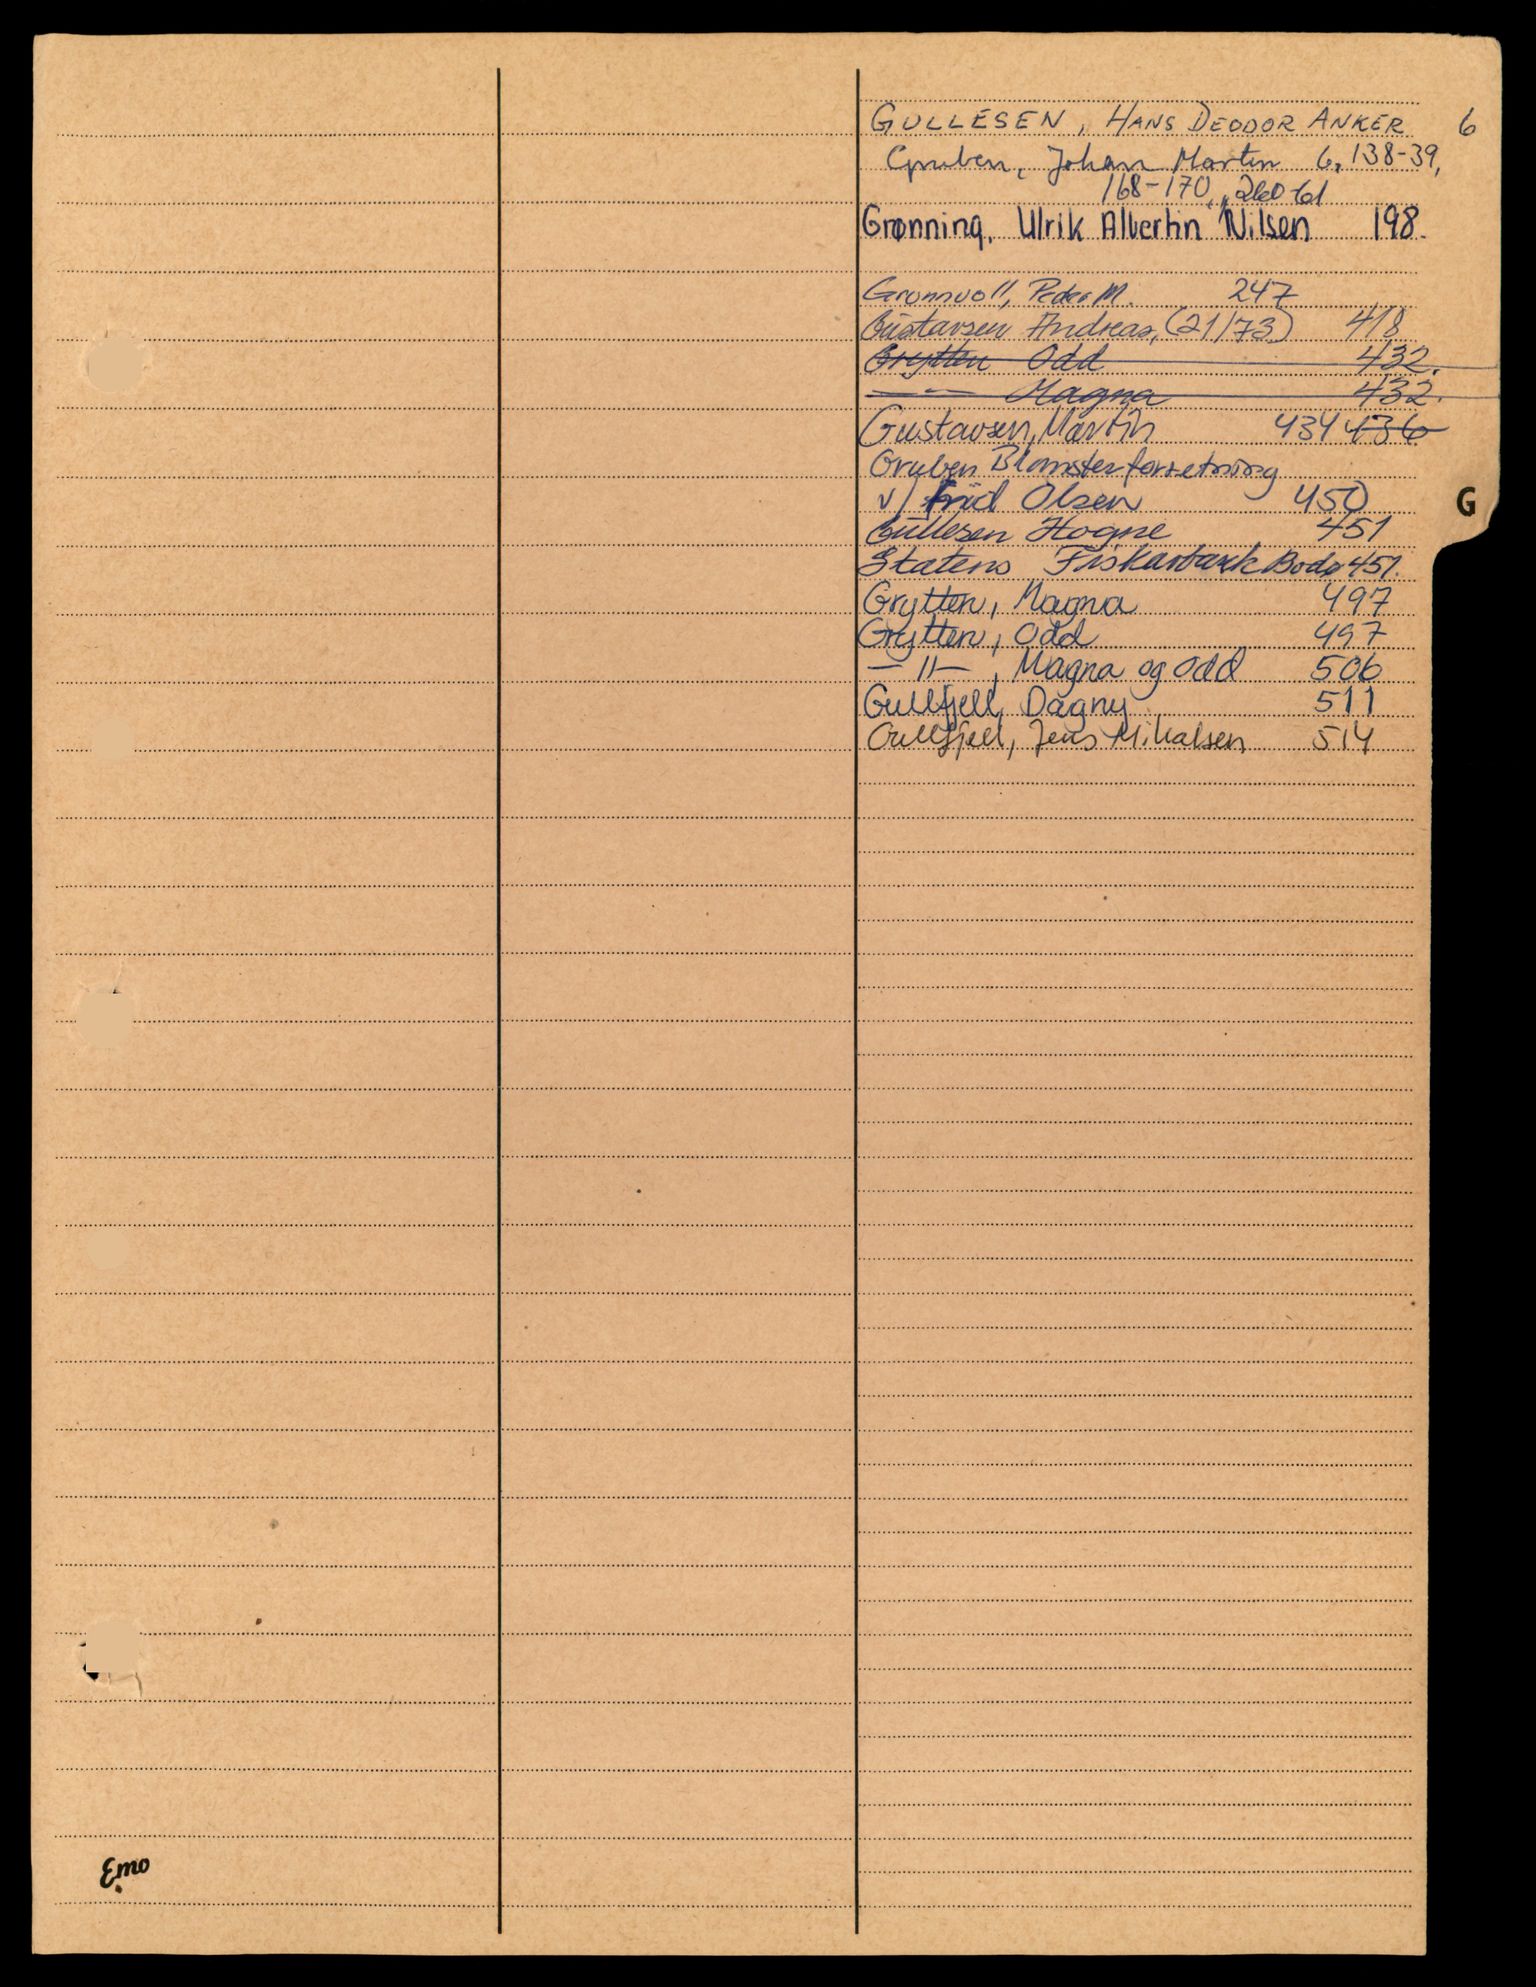 GULLESEN, HANS DEODOR ANKER 6
Gruben, Johan Martin 6, 138-39,
168-170, 260-61
Grønning, Ulrik Albertin Nilsen 198.
Grønnvoll, Peder M. 247
Gustavsen Andreas, (21/73) 418
Grytten Odd 432.
— — Magna 432.
Gustavsen, Martin 434 436
Gruben Blomsterforretning
v/ Olsen 450
Gullesen Hogne 451
Statens Fiskarbank Bodø 451.
Grytten, Magna 497
Grytten, Odd 497
— 11 —, Magna og Odd 506
G
Gullfjell, Dagny 511
Gullfjell, Jens Mikalsen 514
Emo